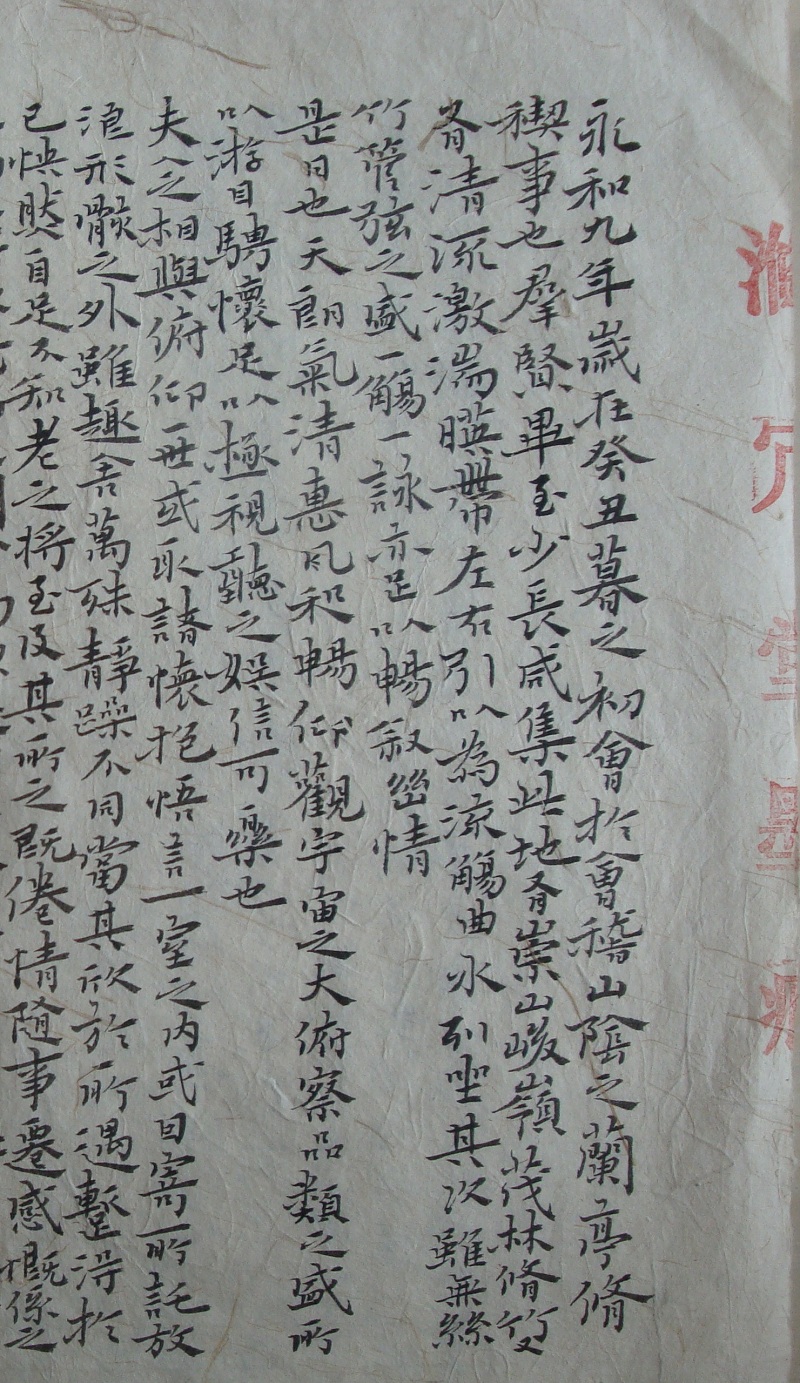 永和九年歲在癸丑暮之初會於會稽山陰之蘭亭脩
稧事也羣賢畢至少長咸集此地有崇山峻嶺茂林脩竹又
有清流激湍暎帶左右引以為流觴曲水列坐其次雖無絲
竹管弦之盛一觴一詠亦足以暢敘幽情
是日也天朗氣清惠風和暢仰觀宇宙之大俯察品類之盛所
以遊目騁懷足以極視聽之娛信可樂也
夫人之相與俯仰一世或取諸懷抱悟言一室之內或因寄所託放
浪形骸之外雖趣舍萬殊靜躁不同當其欣於所遇蹔得於
己怏然自足不知老之將至及其所之既倦情隨事遷感慨係之